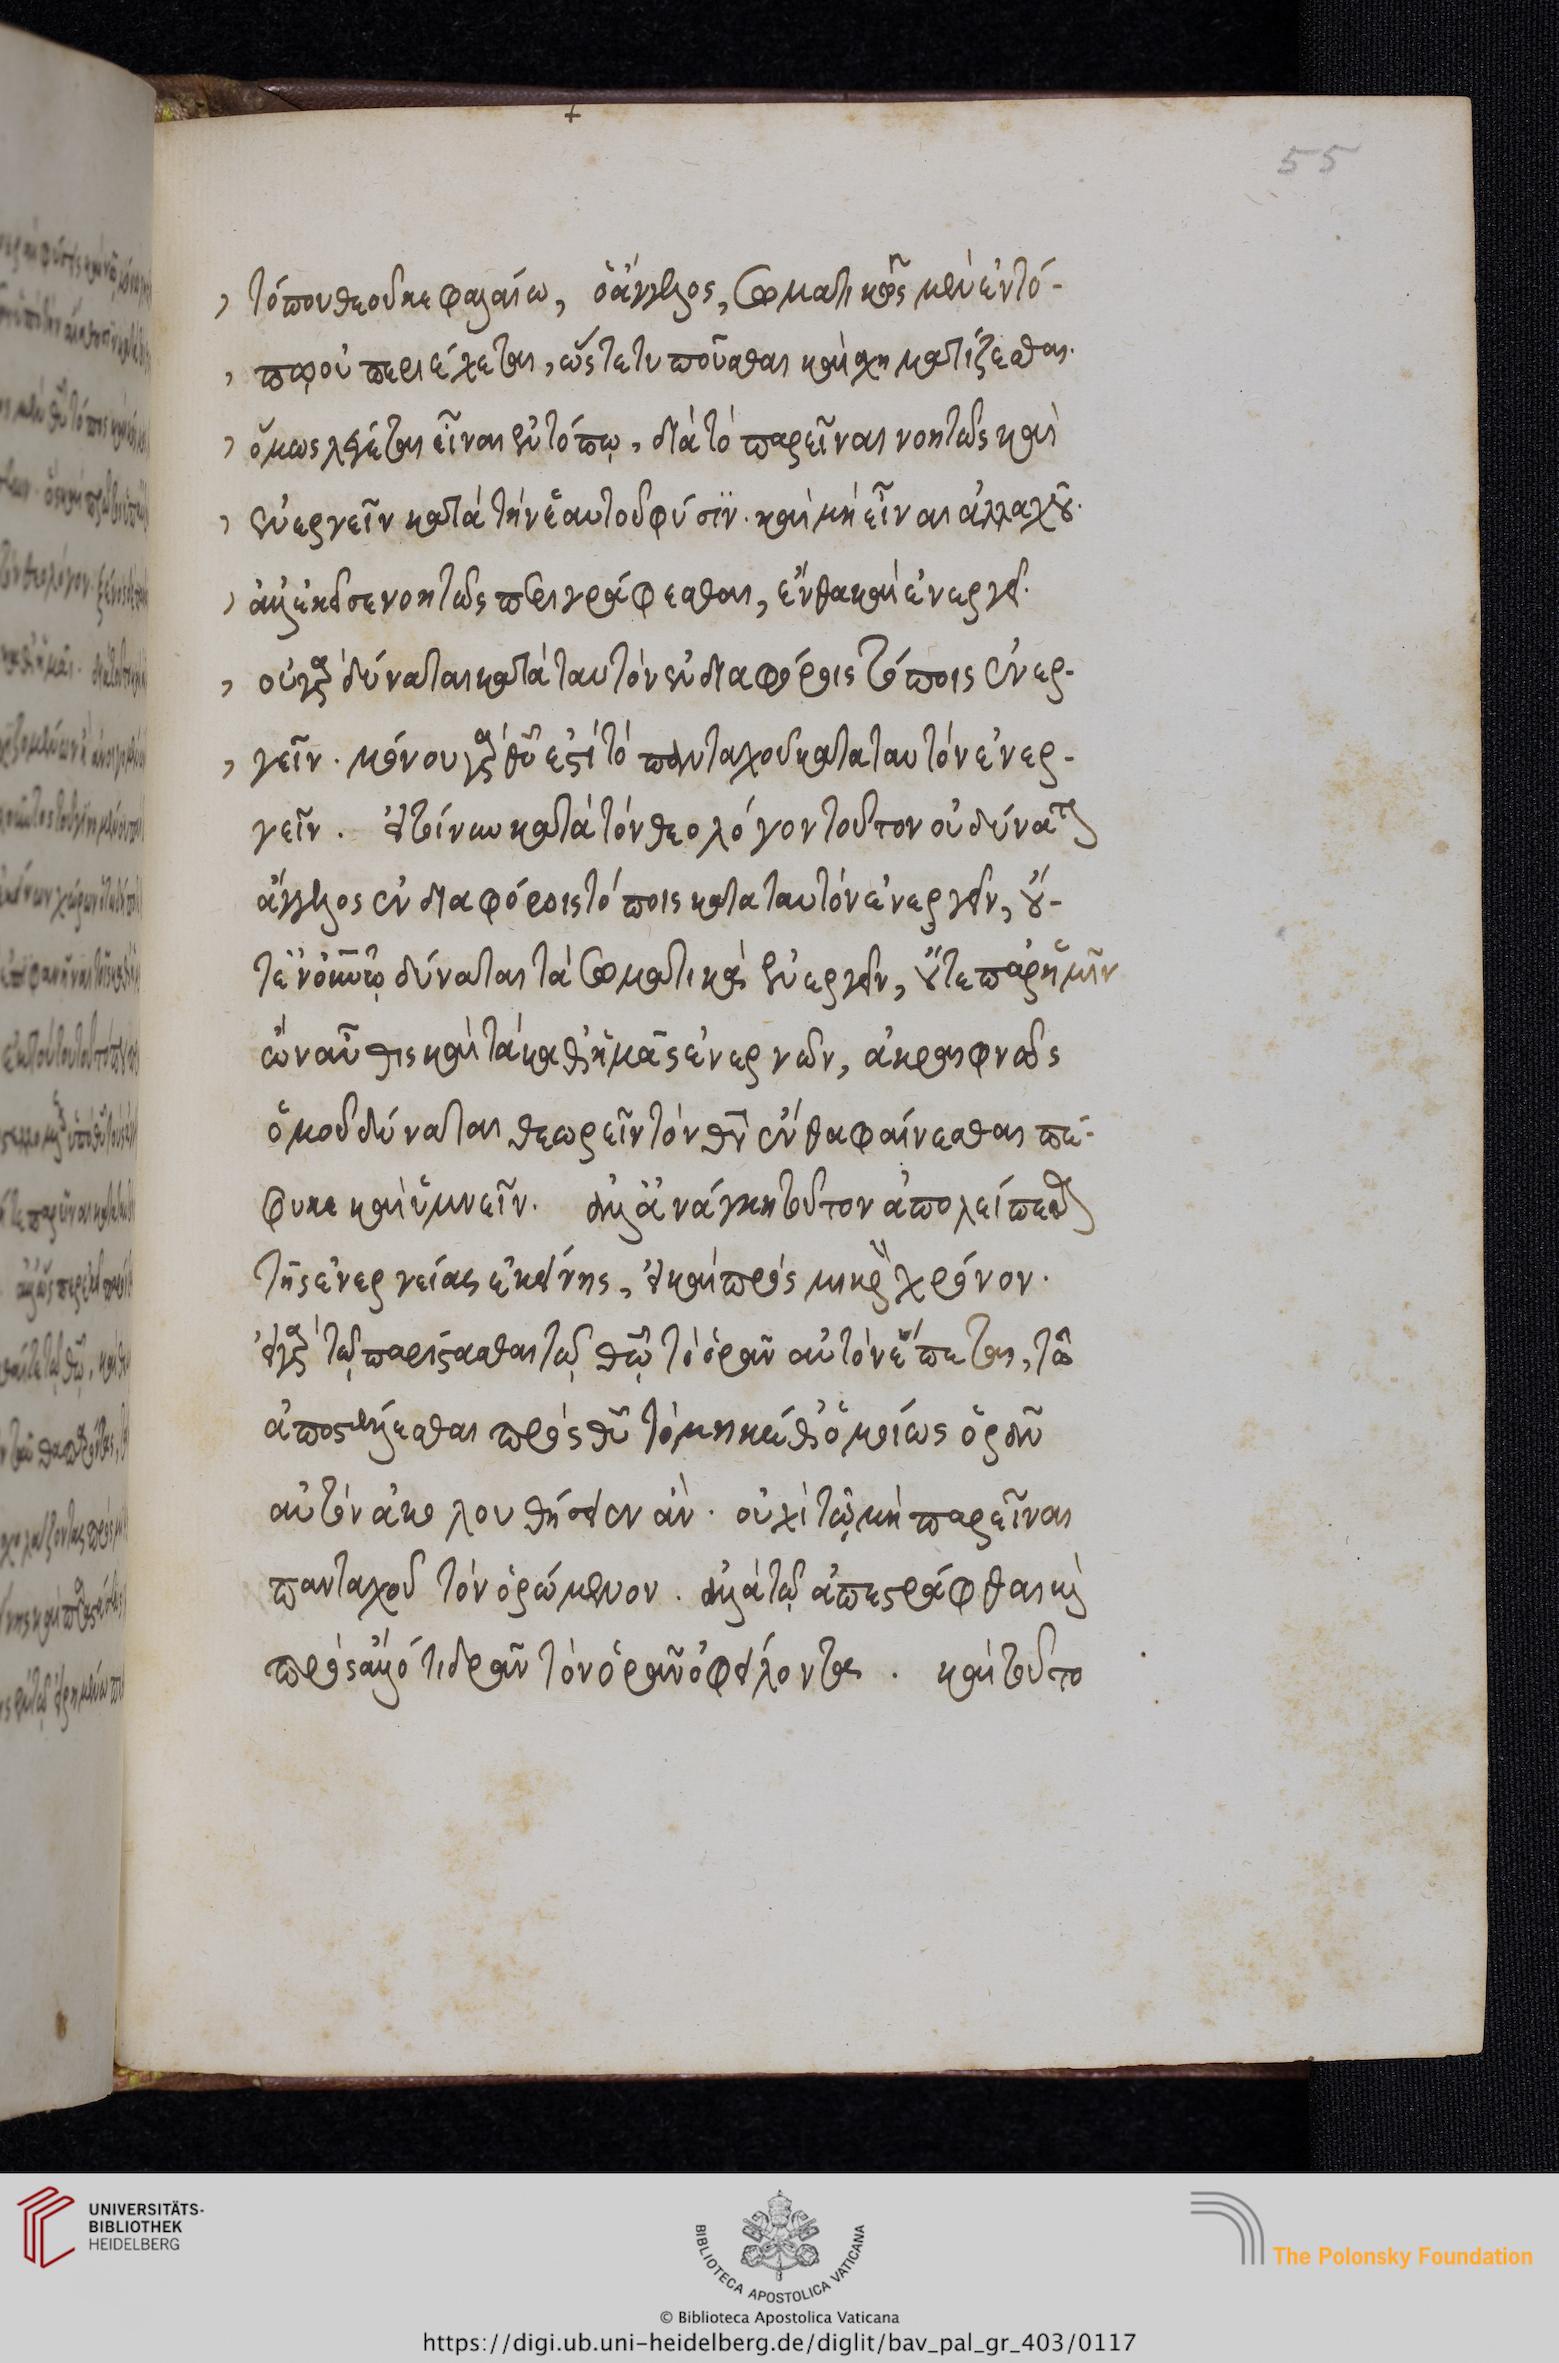 55
τόπου θεοῦ κεφαλαίω, ὁ ἄγγελος, σωματικῶς μὲν ἐν τό-
πω οὐ περιέχεται, ὥστε τυποῦσθαι καὶ σχηματίζεσθαι.
ὅμως λέγεται εἶναι ἐν τόπῳ, διὰ τὸ παρεῖναι νοητῶς καὶ
ἐνεργεῖν κατὰ τὴν ἑαυτοῦ φύσιν. καὶ μὴ εἶναι ἀλλαχοῦ.
ἀλλ' ἐκεῖσε νοητῶς περιγράφεσθαι, ἔνθα καὶ ἐνεργεῖ.
οὐ γὰρ δύναται κατὰ ταυτὸν ἐν διαφόροις τόποις ἐνερ-
γεῖν. μόνου γὰρ θῦ ἐστὶ τὸ πανταχοῦ κατα ταυτὸν ἐνερ-
γεῖν. εἰ τοίνυν κατὰ τὸν θεολόγον τοῦτον οὐ δύναται
ἄγγελος ἐν διαφόροις τόποις κατα ταυτὸν ἐνεργεῖν, οὔ-
τε δύναται τὰ σωματικὰ ἐνεργεῖν, οὔτε παρ' ἡμῖν
ὢν αὖθις καὶ τὰ καθ' ἡμᾶς ἐνεργῶν, ἀκραιφνῶς
ὁμοῦ δύναται θεωρεῖν τὸν θν ἔνθα φαίνεσθαι πέ-
φυκε καὶ ὑμνεῖν. ἀλλ' ἀνάγκη τοῦτον ἀπολείπεσθαι
τῆς ἐνεργείας ἐκείνης, εἰ καὶ πρὸς μικρὸν χρόνον.
εἰ γὰρ τῷ παρίστασθαι τῷ θῶ τὸ ὁρᾶν αὐτὸν ἕπεται, τῶ
ἀποστέλλεσθαι πρὸς θῦ τὸ μηκέθ' ὁμοίως ὁρᾶν
αὐτὸν ἀκολουθήσειεν ἄν. οὐχὶ τῷ μὴ παρεῖναι
πανταχοῦ τὸν ὁρώμενον. ἀλλὰ τῷ ἀπεστράφθαι καὶ
πρὸς ἄλλό τι δρᾶν τὸν ὁρᾶν ὀφείλοντα. καὶ τοῦτο
UNIVERSITÄTS-
BIBLIOTHEK
HEIDELBERG
BIBLIOTECA APOSTOLICA VATICANA
The Polonsky Foundation
© Biblioteca Apostolica Vaticana
https://digi.ub.uni-heidelberg.de/diglit/bav_pal_gr_403/0117